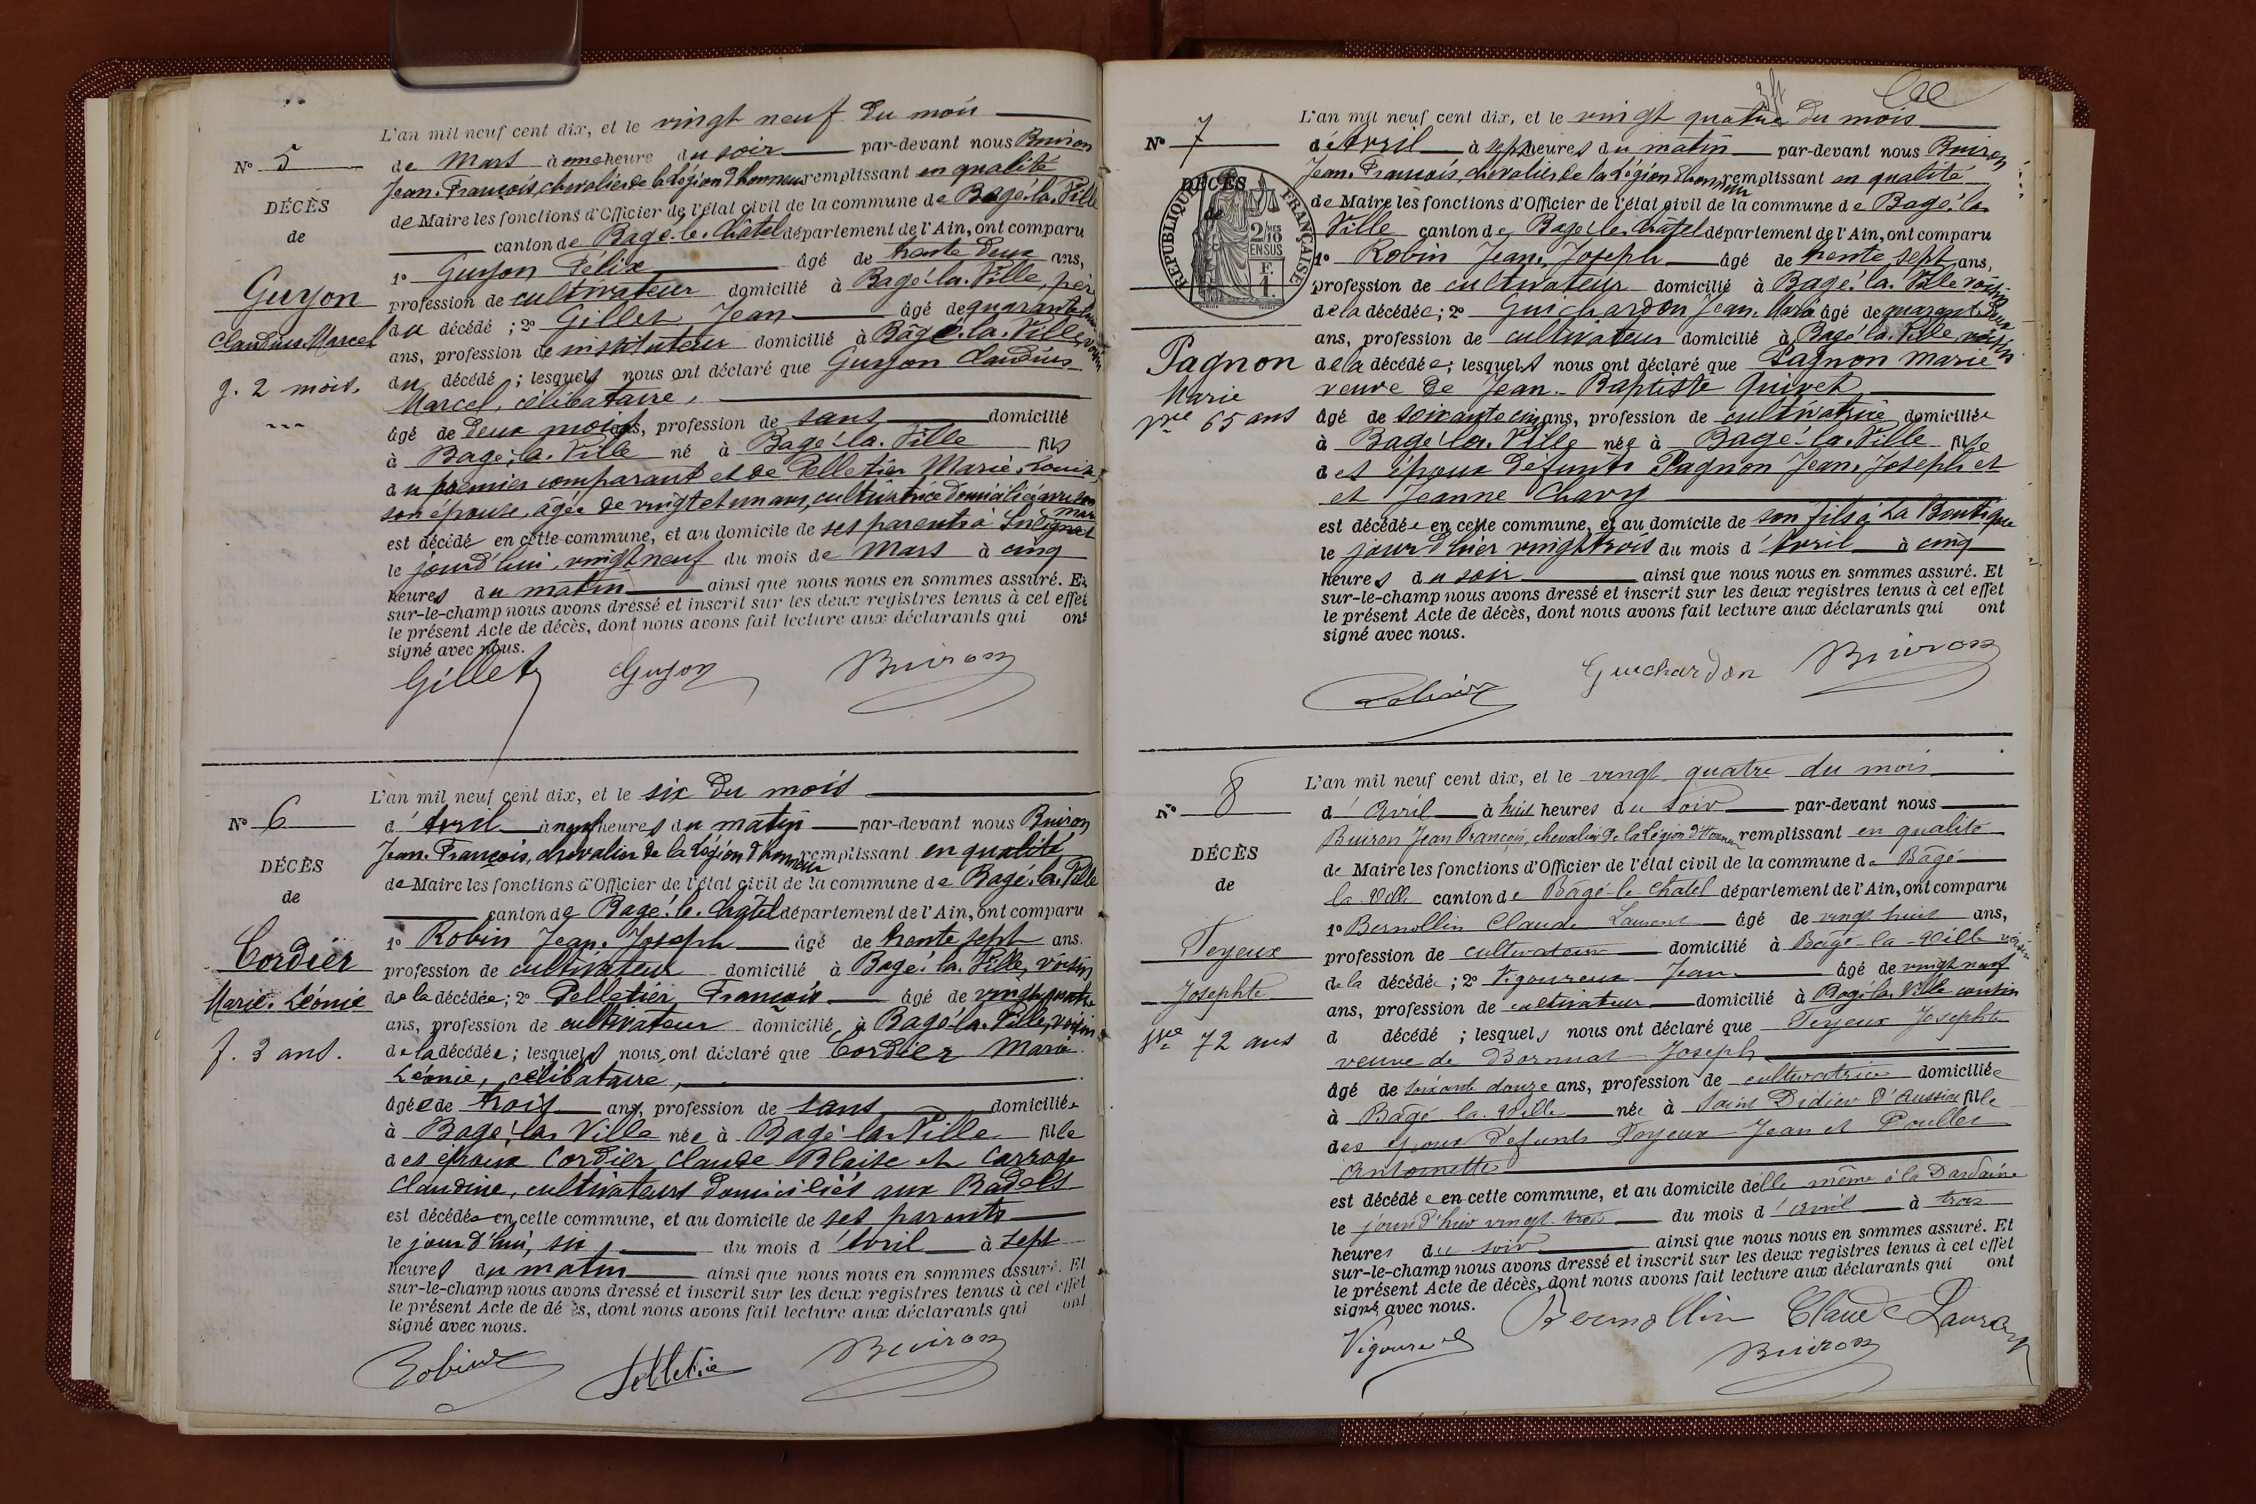 L'an mil neuf cent dix, et le vingt neuf du mois
N° 5
de Mars à onze heure du soir par-devant nous Buiron
Jean-François, chevalier de la Légion d'honneur remplissant en qualité
DÉCÈS
de
de Maire les fonctions d'Officier de l'état civil de la commune de Bagé-la-Ville
canton de Bagé-le-Châtel département de l'Ain, ont comparu
1° Guyon Félix âgé de trente deux ans,
Guyon
Claudius Marcel
g. 2 mois.
profession de cultivateur domicilié à Bagé-la-Ville, père
du décédé ; 2° Gillet Jean âgé de quarante
ans, profession de instituteur domicilié à Bâgé-la-Ville, voisin
du décédé ; lesquels nous ont déclaré que Guyon Claudius
Marcel, célibataire,
âgé de deux mois ans, profession de sans domicilié
à Bagé-la-Ville né à Bagé-la-Ville fils
du premier comparant et de Pelletier Marie Louise,
son épouse, âgée de vingt et un ans, cultivatrice domiciliée avec son
mari
est décédé en cette commune, et au domicile de ses parents à
le jourd'hui, vingt neuf du mois de Mars à cinq
heures du matin ainsi que nous nous en sommes assuré. Et
sur-le-champ nous avons dressé et inscrit sur les deux registres tenus à cet effet
le présent Acte de décès, dont nous avons fait lecture aux déclarants qui ont
signé avec nous.
Gillet Guyon Buiron
L'an mil neuf cent dix, et le six du mois
N° 6
d'Avril à neuf heures du matin par-devant nous Buiron
Jean-François, chevalier de la Légion d'honneur remplissant en qualité
DÉCÈS
de
de Maire les fonctions d'Officier de l'état civil de la commune de Bagé-la-Ville
canton de Bagé-le-Châtel département de l'Ain, ont comparu
1° Robin Jean-Joseph âgé de trente sept ans.
Cordier
Marie-Léonie
f. 3 ans.
profession de cultivateur domicilié à Bagé-la-Ville, voisin
de la décédée ; 2° Pelletier François âgé de vingt quatre
ans, profession de cultivateur domicilié à Bagé-la-Ville, voisin
de la décédée ; lesquels nous ont déclaré que Cordier Marie
Léonie, célibataire,
âgée de trois ans, profession de sans domiciliée
à Bagé-la-Ville née à Bagé-la-Ville fille
des époux Cordier Claude Blaise et Carrage
Claudine, cultivateurs domiciliés aux Badels
est décédée en cette commune, et au domicile de ses parents
le jourd'hui, six du mois d'Avril à sept
heures du matin ainsi que nous nous en sommes assuré. Et
sur-le-champ nous avons dressé et inscrit sur les deux registres tenus à cet effet
le présent Acte de décès, dont nous avons fait lecture aux déclarants qui ont
signé avec nous.
Robin Pelletier Buiron
L'an mil neuf cent dix, et le vingt quatre du mois
N° 7
d'Avril à sept heures du matin par-devant nous Buiron
Jean-François, chevalier de la Légion d'honneur remplissant en qualité
DÉCÈS
de
RÉPUBLIQUE FRANÇAISE
2/10 EN SUS
de Maire les fonctions d'Officier de l'état civil de la commune de Bagé-la
Ville canton de Bagé-le-Châtel département de l'Ain, ont comparu
1° Robin Jean-Joseph âgé de trente sept ans,
profession de cultivateur domicilié à Bagé-la-Ville voisin
de la décédée ; 2° Guichardon Jean-Marie âgé de quarante deux
ans, profession de cultivateur domicilié à Bagé-la-Ville, voisin
Pagnon
Marie
Vve 65 ans
de la décédée ; lesquels nous ont déclaré que Pagnon Marie
veuve de Jean-Baptiste Quivet
âgé de soixante cinq ans, profession de cultivatrice domiciliée
à Bagé-la-Ville née à Bagé-la-Ville fille
des époux défunts Pagnon Jean-Joseph et
et Jeanne Chavy
est décédée en cette commune, et au domicile de son fils à La Boutique
le jour d'hier vingt trois du mois d'Avril à cinq
heures du soir ainsi que nous nous en sommes assuré. Et
sur-le-champ nous avons dressé et inscrit sur les deux registres tenus à cet effet
le présent Acte de décès, dont nous avons fait lecture aux déclarants qui ont
signé avec nous.
Robin Guichardon Buiron
L'an mil neuf cent dix, et le vingt quatre du mois
N° 8
d'Avril à huit heures du soir par-devant nous
Buiron Jean François, chevalier de la Légion d'Honneur remplissant en qualité
DÉCÈS
de
de Maire les fonctions d'Officier de l'état civil de la commune de Bâgé
la Ville canton de Bâgé-le-Châtel département de l'Ain, ont comparu
1° Bernollin Claude Laurent âgé de vingt huit ans,
Teyeux
Josephte
Vve 72 ans
profession de cultivateur domicilié à Bâgé-la-Ville voisin
de la décédée ; 2° Vigoureux Jean âgé de vingt neuf
ans, profession de cultivateur domicilié à Bagé-la-Ville cousin
d décédé ; lesquels nous ont déclaré que Teyeux Josephte
veuve de Bornuat Joseph
âgé de soixante douze ans, profession de cultivatrice domiciliée
à Bâgé la Ville née à Saint Didier d'Aussiat fille
des époux défunts Teyeux Jean et Poullet
Antoinette
est décédée en cette commune, et au domicile d'elle même à la Dardaine
le jour d'hier vingt trois du mois d'avril à trois
heures du soir ainsi que nous nous en sommes assuré. Et
sur-le-champ nous avons dressé et inscrit sur les deux registres tenus à cet effet
le présent Acte de décès, dont nous avons fait lecture aux déclarants qui ont
signé avec nous.
Bernollin Claude Laurent
Vigoureux
Buiron